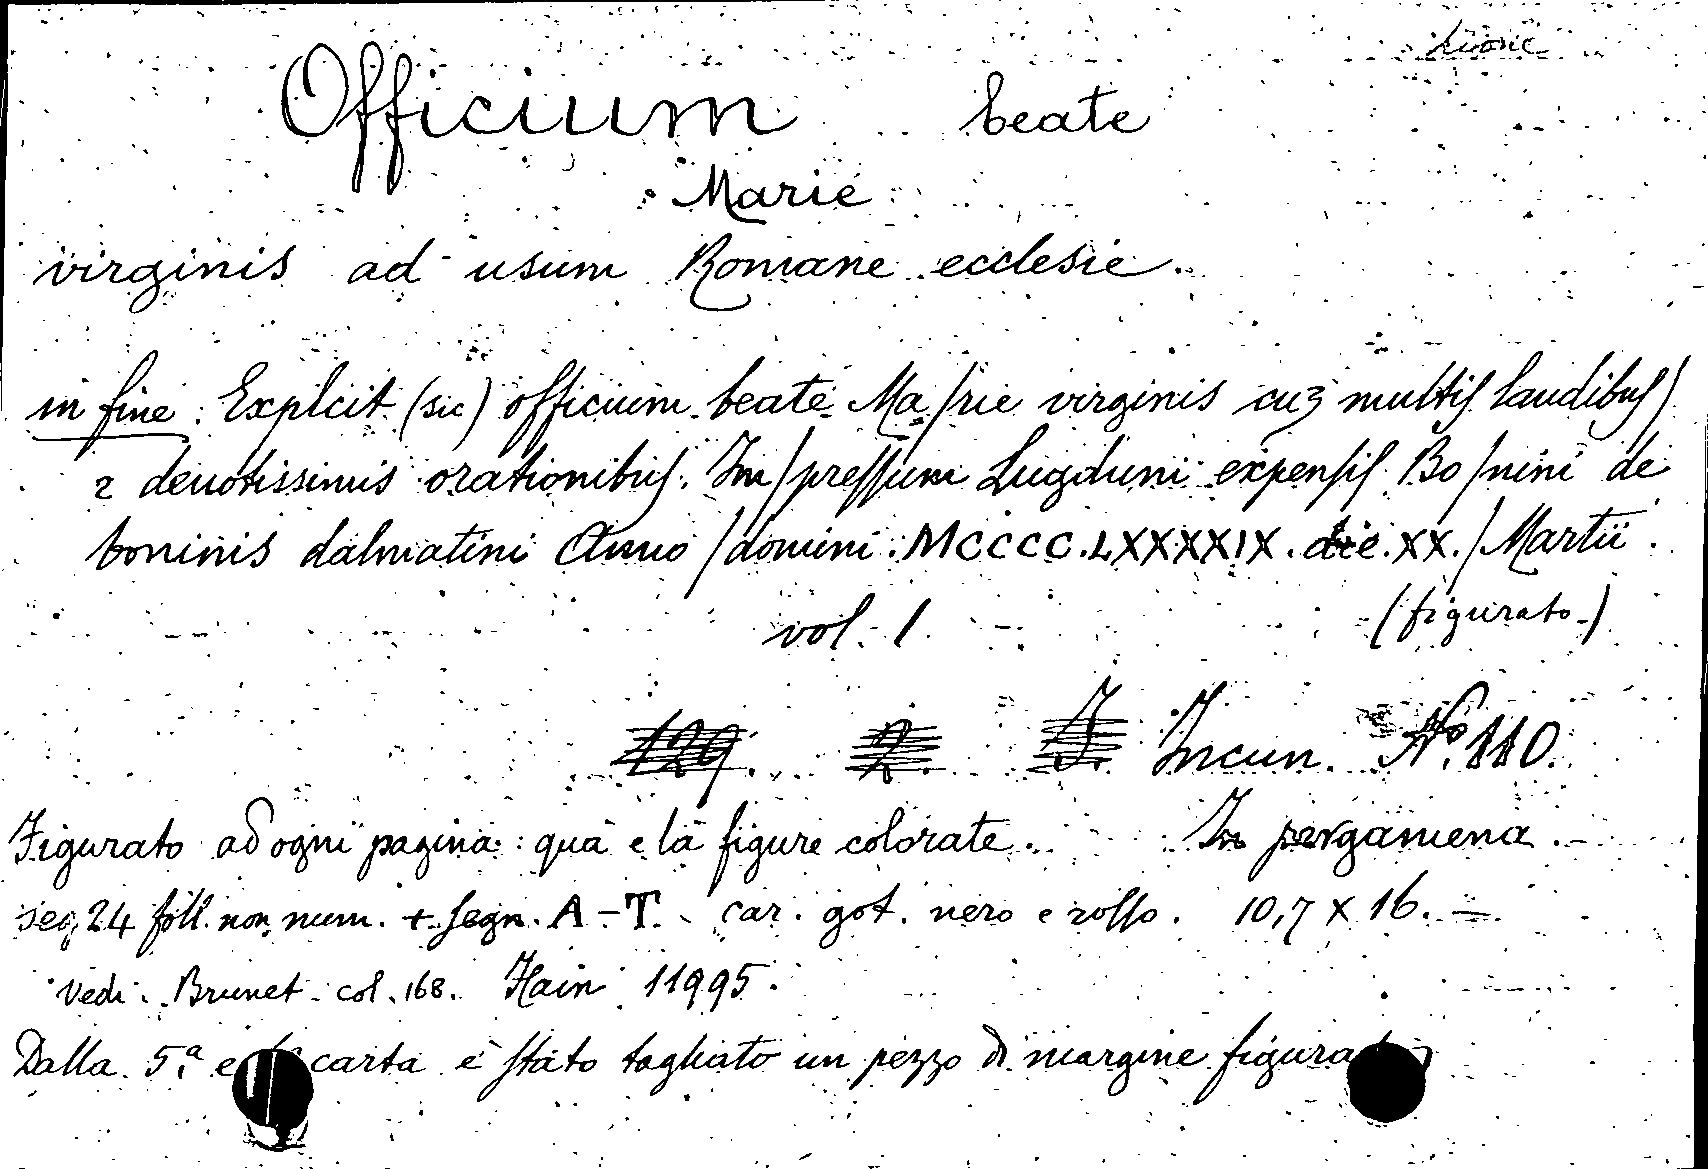 Officium beate
Marie
virginis ad usum Romane ecclesie.
in fine: Explcit (sic) officium beate Ma/rie virginis cuʒ multiſ laudibuſ/
2 deuotissimis orationibuſ. Im/preſſum Lugduni expenſiſ Bo/nini de
boninis dalmatini Anno/domini.MCCCC.LXXXXIX.die.XX./Martii.
vol. 1 (figurato)
129. 2. I. Incun. Nº. 110.
Figurato ad ogni pagina: quà e là figure colorate. In pergamena.
seg. 24 foll. non num. + segn. A-T. car. got. nero e roſſo. 10,7 x 16.—
Vedi. Brunet. col. 168. Hain 11995.
Dalla 5.ª e carta è ſtato tagliato un pezzo di margine figurato